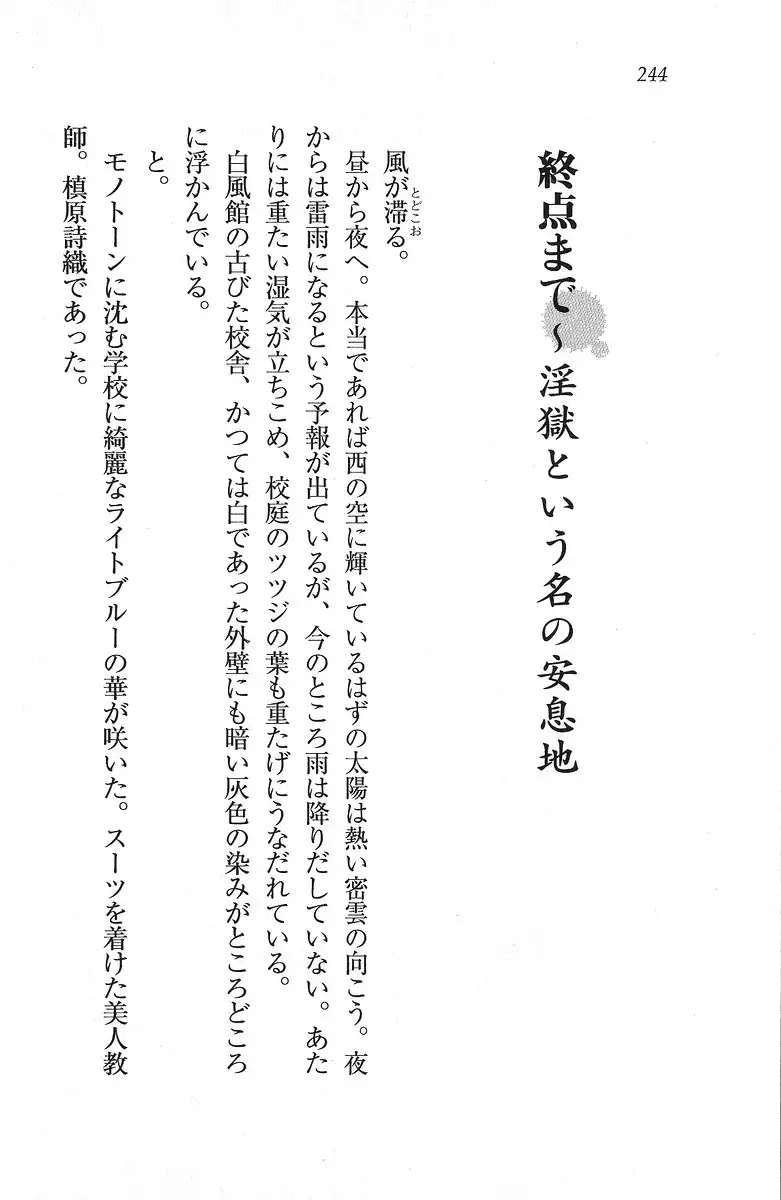 244
終点まで～淫獄という名の安息地
風が滞る。
とどこお
昼から夜へ。本当であれば西の空に輝いているはずの太陽は熱い密雲の向こう。夜
からは雷雨になるという予報が出ているが、今のところ雨は降りだしていない。あた
りには重たい湿気が立ちこめ、校庭のツツジの葉も重たげにうなだれている。
白風館の古びた校舎、かつては白であった外壁にも暗い灰色の染みがところどころ
に浮かんでいる。
と。
モノトーンに沈む学校に綺麗なライトブルーの華が咲いた。スーツを着けた美人教
師。槙原詩織であった。